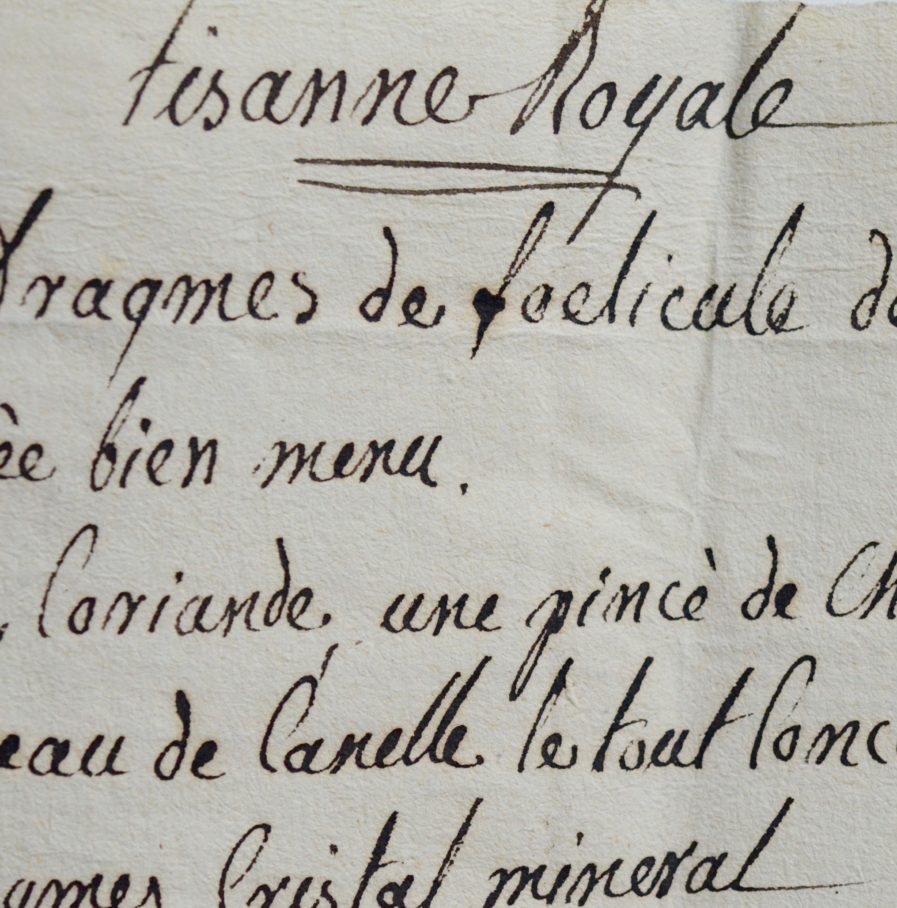 tisanne Royale
dragmes de foelicule de
ée bien menu.
Coriande, une pincè de Ch
eau de Canelle le tout Conc
gmes Cristal mineral